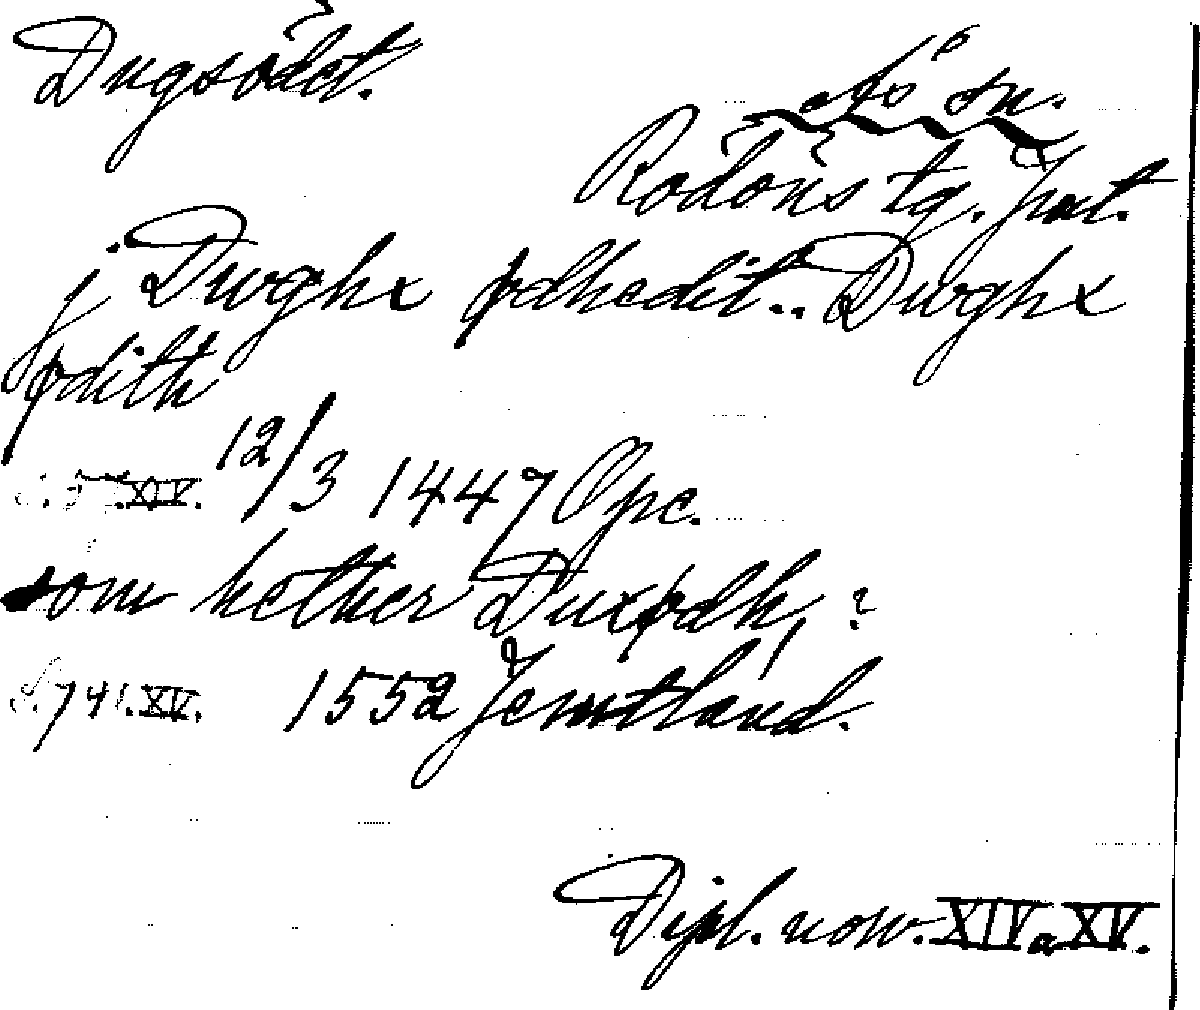 Dugsödet.
Ås sn.
Rödöns tg. Jmt.
j Dwghx þdhedit.. Dwghx
þdith
S. XIV. 12/3 1447 Opc.
som hether Duxþdh, ?
S. 741. XV. 1552 Jemtland.
Dipl. norv. XIV a XV.